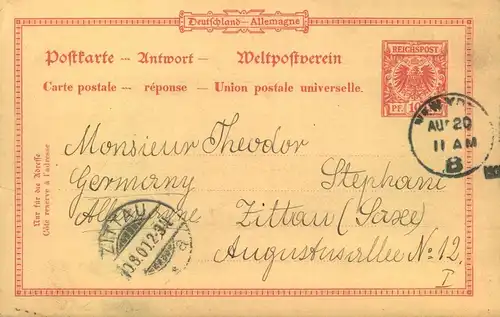 Deutschland–Allemagne
Postkarte – Antwort – Weltpostverein
Carte postale – réponse – Union postale universelle.
REICHSPOST
PF. 10
AU 20
11 AM
B
Nur für die Adresse
Côté réservé à l'adresse
Monsieur Theodor
Germany Stephani
Zittau (Saxe)
Augustusallee No 12.
I
ZITTAU